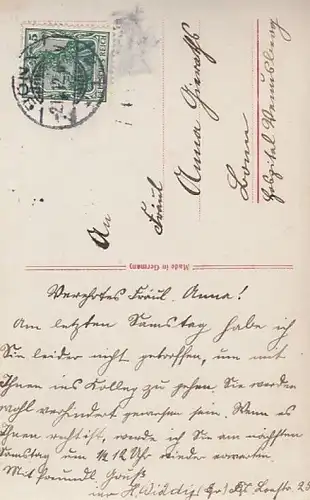 5
BONN
An
Fräul
Anna Gieraths
Bonn
Hospital Venusberg
Made in Germany
Verehrtes Fräul. Anna!
Am letzten Samstag habe ich
Sie leider nicht getroffen, um mit
Ihnen ins Kolleg zu gehen Sie werden
wohl verhindert gewesen sein. Wenn es
Ihnen recht ist, werde ich Sie am nächsten
Samstag um 12 Uhr wieder erwarten.
Mit freundl. Gruß